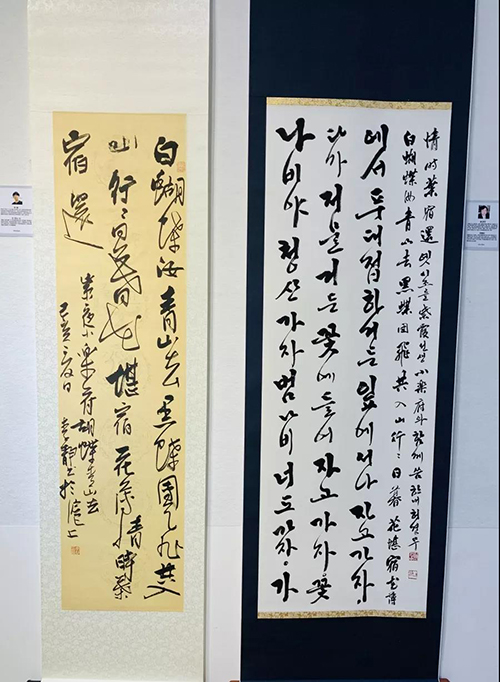 白蝴蝶汝青山去黑蝶團飛共入
山行〻日暮花堪宿花薄情時葉
宿還
紫霞小樂府胡蝶青山去
己亥夏日 於滬上
나비야 청산 가자 범나비 너도 가자 가
다가 저물거든 꽃에 들어 자고 가자 꽃
에서 푸대접하거든 잎에서나 자고 가자
白蝴蝶汝青山去 黑蝶团飛共入山行〻日暮花堪宿花薄
情時葉宿還 옛시조를 紫霞선생 小樂府와 함께